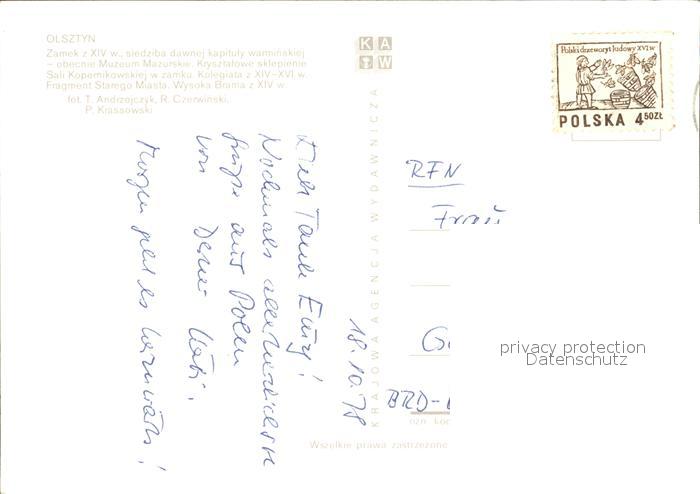 OLSZTYN
Zamek z XIV w., siedziba dawnej kapituły warmińskiej
– obecnie Muzeum Mazurskie. Kryształowe sklepienie
Sali Kopernikowskiej w zamku. Kolegiata z XIV–XVI w.
Fragment Starego Miasta. Wysoka Brama z XIV w.
fot. T. Andrzejczyk, R. Czerwiński,
P. Krassowski
KAW
Polski drzeworyt ludowy XVI w
POLSKA 4.50ZŁ
18.10.78
Tante
Nochmals
Grüße aus Polen
von Deiner
Morgen geht es heimwärts!
KRAJOWA AGENCJA WYDAWNICZA
RFN
G
BRD-
ozn. kod
Wszelkie prawa zastrzeżone
privacy protection
Datenschutz